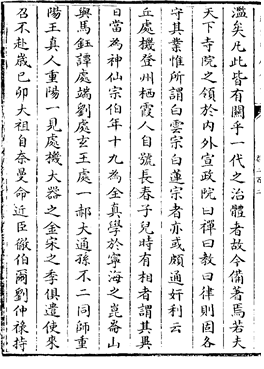 濫矣凡此皆有關乎一代之治體者故今備著焉若夫
天下寺院之領於內外宣政院曰禪曰教曰律則固各
守其業惟所謂白雲宗白蓮宗者亦或頗通奸利云
丘處機登州棲霞人自號長春子兒時有相者謂其異
日當為神仙宗伯年十九為全真學於寧海之崑崳山
與馬鈺譚處端劉處玄王處一郝大通孫不二同師重
陽王真人重陽一見處機大器之金宋之季俱遣使來
召不赴歲已卯太祖自奈曼命近臣徹伯爾劉仲祿持